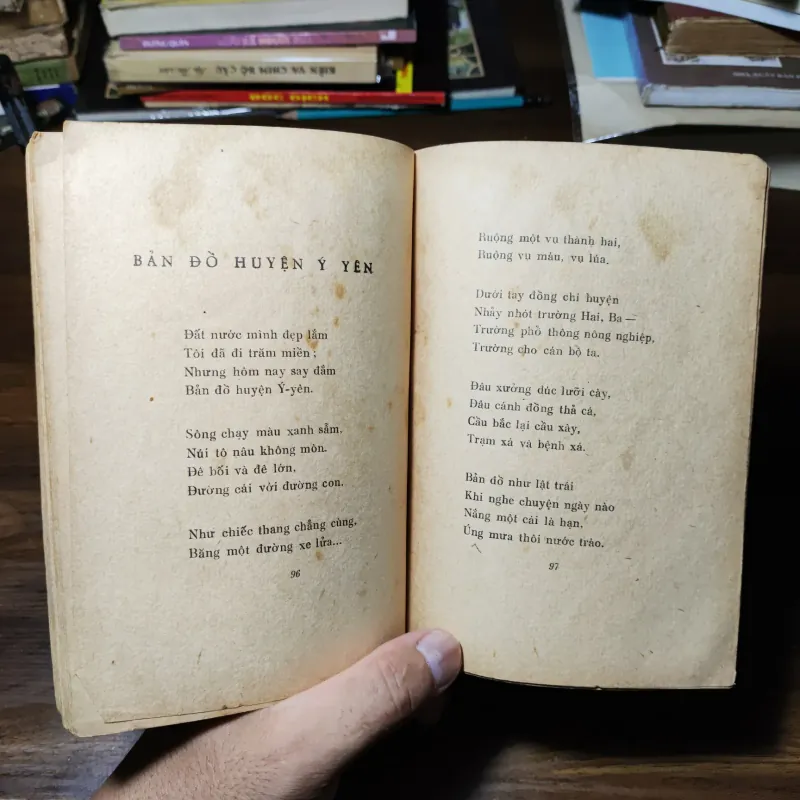 KIÊN VÀ CHIM BỒ CÂU
BẢN ĐỒ HUYỆN Ý YÊN
Đất nước mình đẹp lắm
Tôi đã đi trăm miền;
Nhưng hôm nay say đắm
Bản đồ huyện Ý-yên.
Sông chạy màu xanh sẫm.
Núi tô nâu không mòn.
Đê bối và đê lớn,
Đường cái với đường con.
Như chiếc thang chẳng cùng,
Băng một đường xe lửa...
96
Ruộng một vụ thành hai,
Ruộng vụ màu, vụ lúa.
Dưới tay đồng chí huyện
Nhảy nhót trường Hai, Ba —
Trường phổ thông nông nghiệp,
Trường cho cán bộ ta.
Đâu xưởng đúc lưỡi cày,
Đâu cánh đồng thả cá,
Cầu bắc lại cầu xây,
Trạm xá và bệnh xá.
Bản đồ như lật trái
Khi nghe chuyện ngày nào
Nắng một cái là hạn,
Úng mưa thôi nước trào.
97